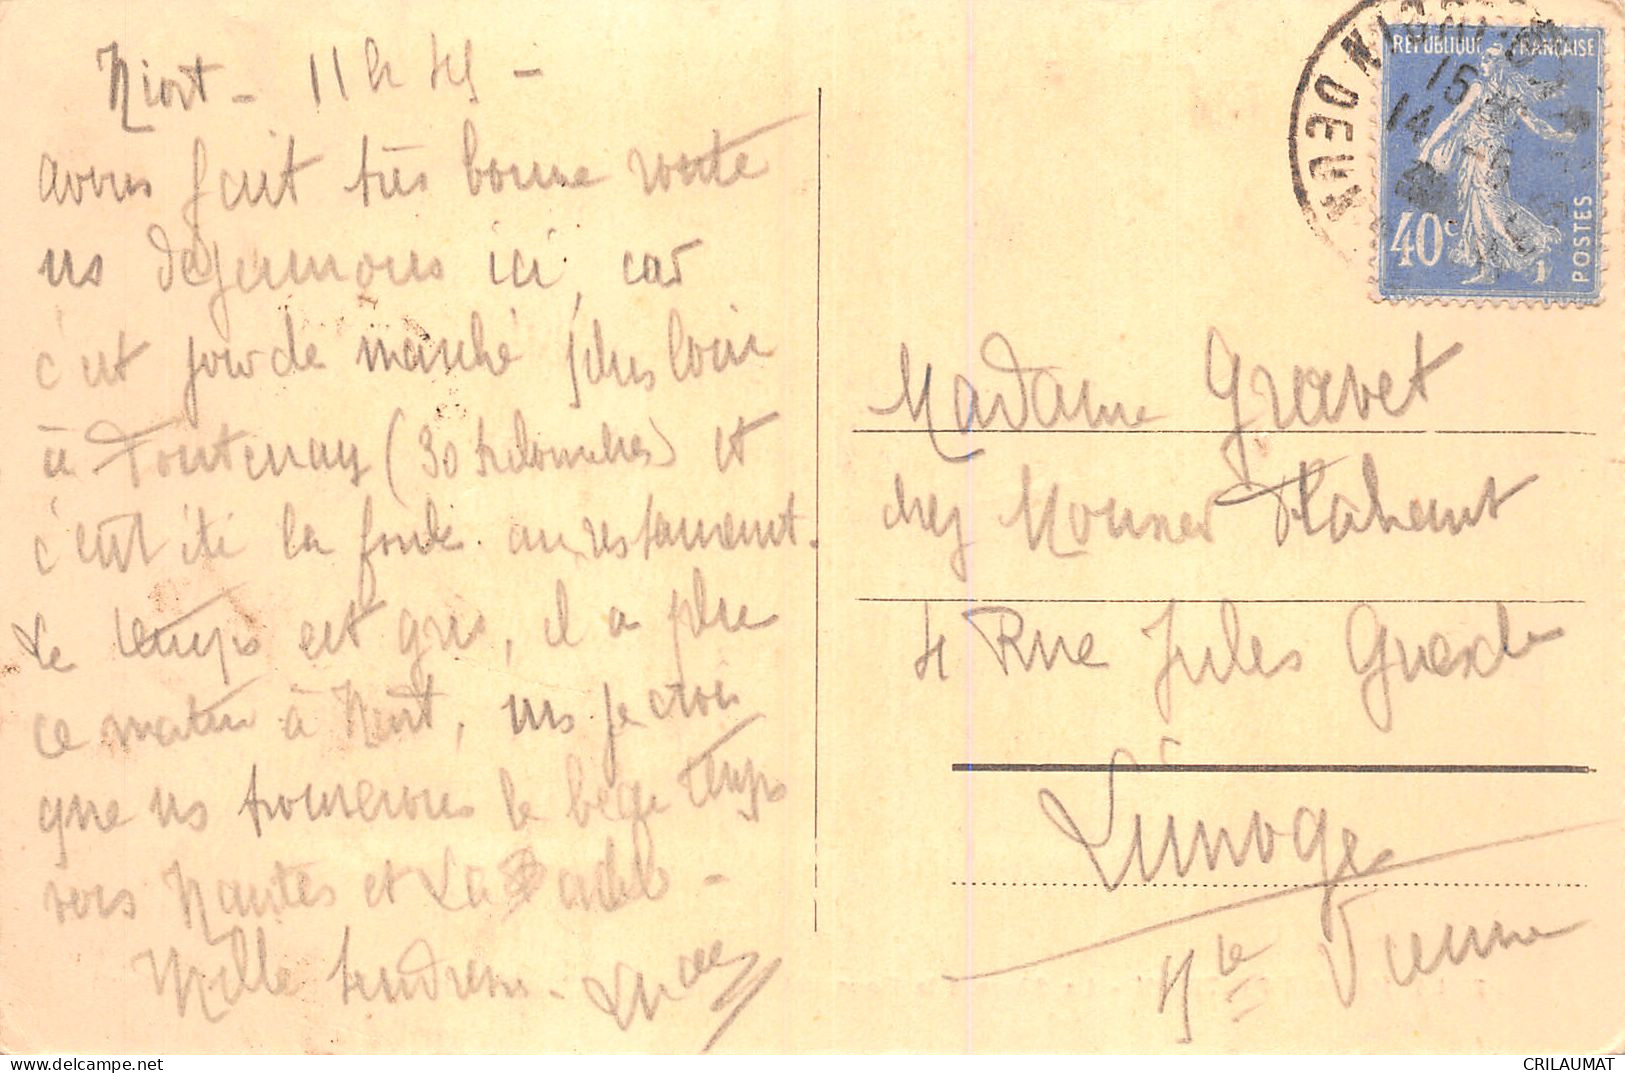 Niort - 11 h 45 -
avons fait très bonne route
ns déjeunons ici, car
c'est jour de marché plus loin
à Fontenay (30 kilomètres) et
c'eut été la foule au restaurant.
Le temps est gris, il a plu
ce matin à Niort, ns je crois
que ns trouverons le beau temps
vers Nantes et La
Mille tendresses -
REPUBLIQUE FRANÇAISE
40c
POSTES
15
14
Madame Gravet
chez Monsieur
4 Rue Jules Guesde
Limoges
Hte Vienne
CRILAUMAT